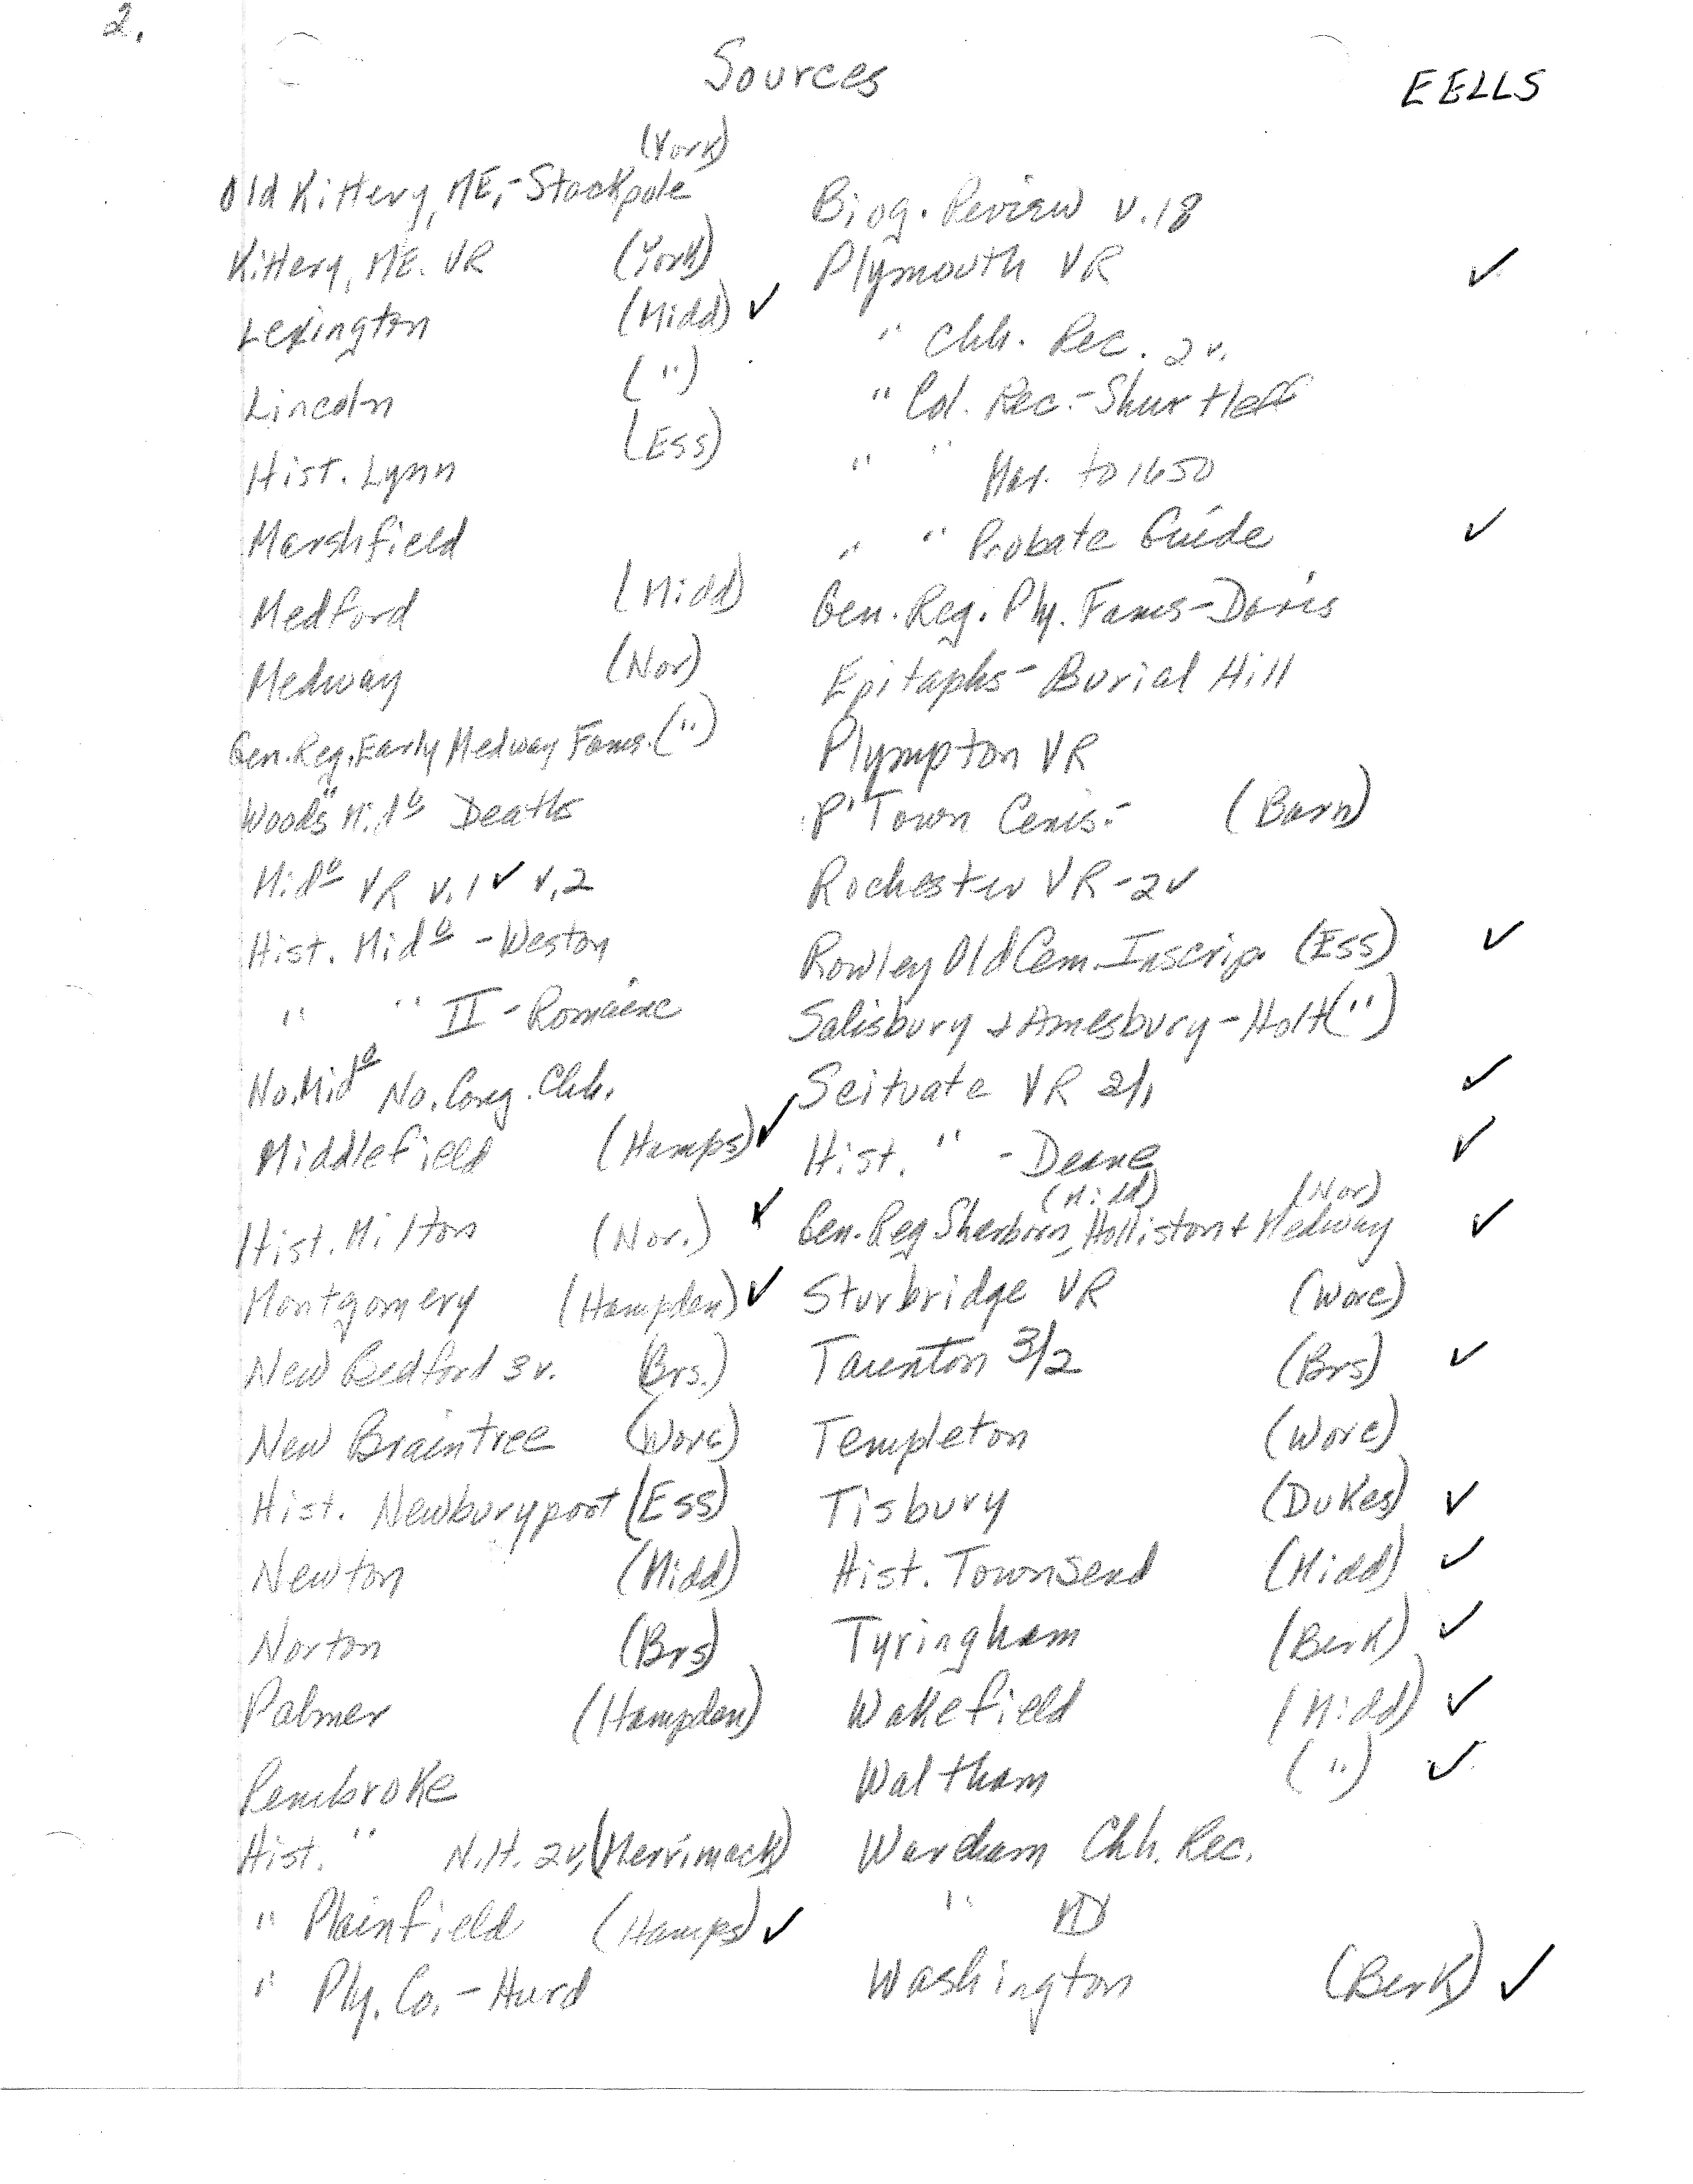 2.
Sources
EELLS
(York)
Old Kittery, ME,-Stackpole
Kittery, ME. VR (York)
Lexington (Midd) ✓
Lincoln (")
Hist. Lynn (Ess)
Marshfield
Medford (Midd)
Medway (Nor)
Gen. Reg. Early Medway Fams. (")
Wood's Midº Deaths
Midº VR v.1 ✓ v.2
Hist. Midº - Weston
" " II - Romaine
No. Midº No. Cong. Chh.
Middlefield (Hamps) ✓
Hist. Milton (Nor.) ✓
Montgomery (Hampden) ✓
New Bedford 3v. (Brs.)
New Braintree (Worc)
Hist. Newburyport (Ess)
Newton (Midd)
Norton (Brs)
Palmer (Hampden)
Pembroke
Hist. " N.H. 2v, (Merrimack)
" Plainfield (Hamps) ✓
" Ply. Co. - Hurd
Biog. Review v.18
Plymouth VR ✓
" Chh. Rec. 2v.
" Col. Rec. - Shurtleff
" " Mar. to 1650
" " Probate Guide ✓
Gen. Reg. Ply. Fams - Davis
Epitaphs - Burial Hill
Plympton VR
P'Town Cems. - (Barn)
Rochester VR - 2v
Rowley Old Cem. Inscrip. (Ess) ✓
Salisbury + Amesbury - Hoyt (")
Scituate VR 2/1 ✓
Hist. " - Deane ✓
(Midd) (Nor)
Gen. Reg Sherborn, Holliston + Medway ✓
Sturbridge VR (Worc)
Taunton 3/2 (Brs) ✓
Templeton (Worc)
Tisbury (Dukes) ✓
Hist. Townsend (Midd) ✓
Tyringham (Berk) ✓
Wakefield (Midd) ✓
Waltham (") ✓
Wareham Chh. Rec.
"
Washington (Berk) ✓